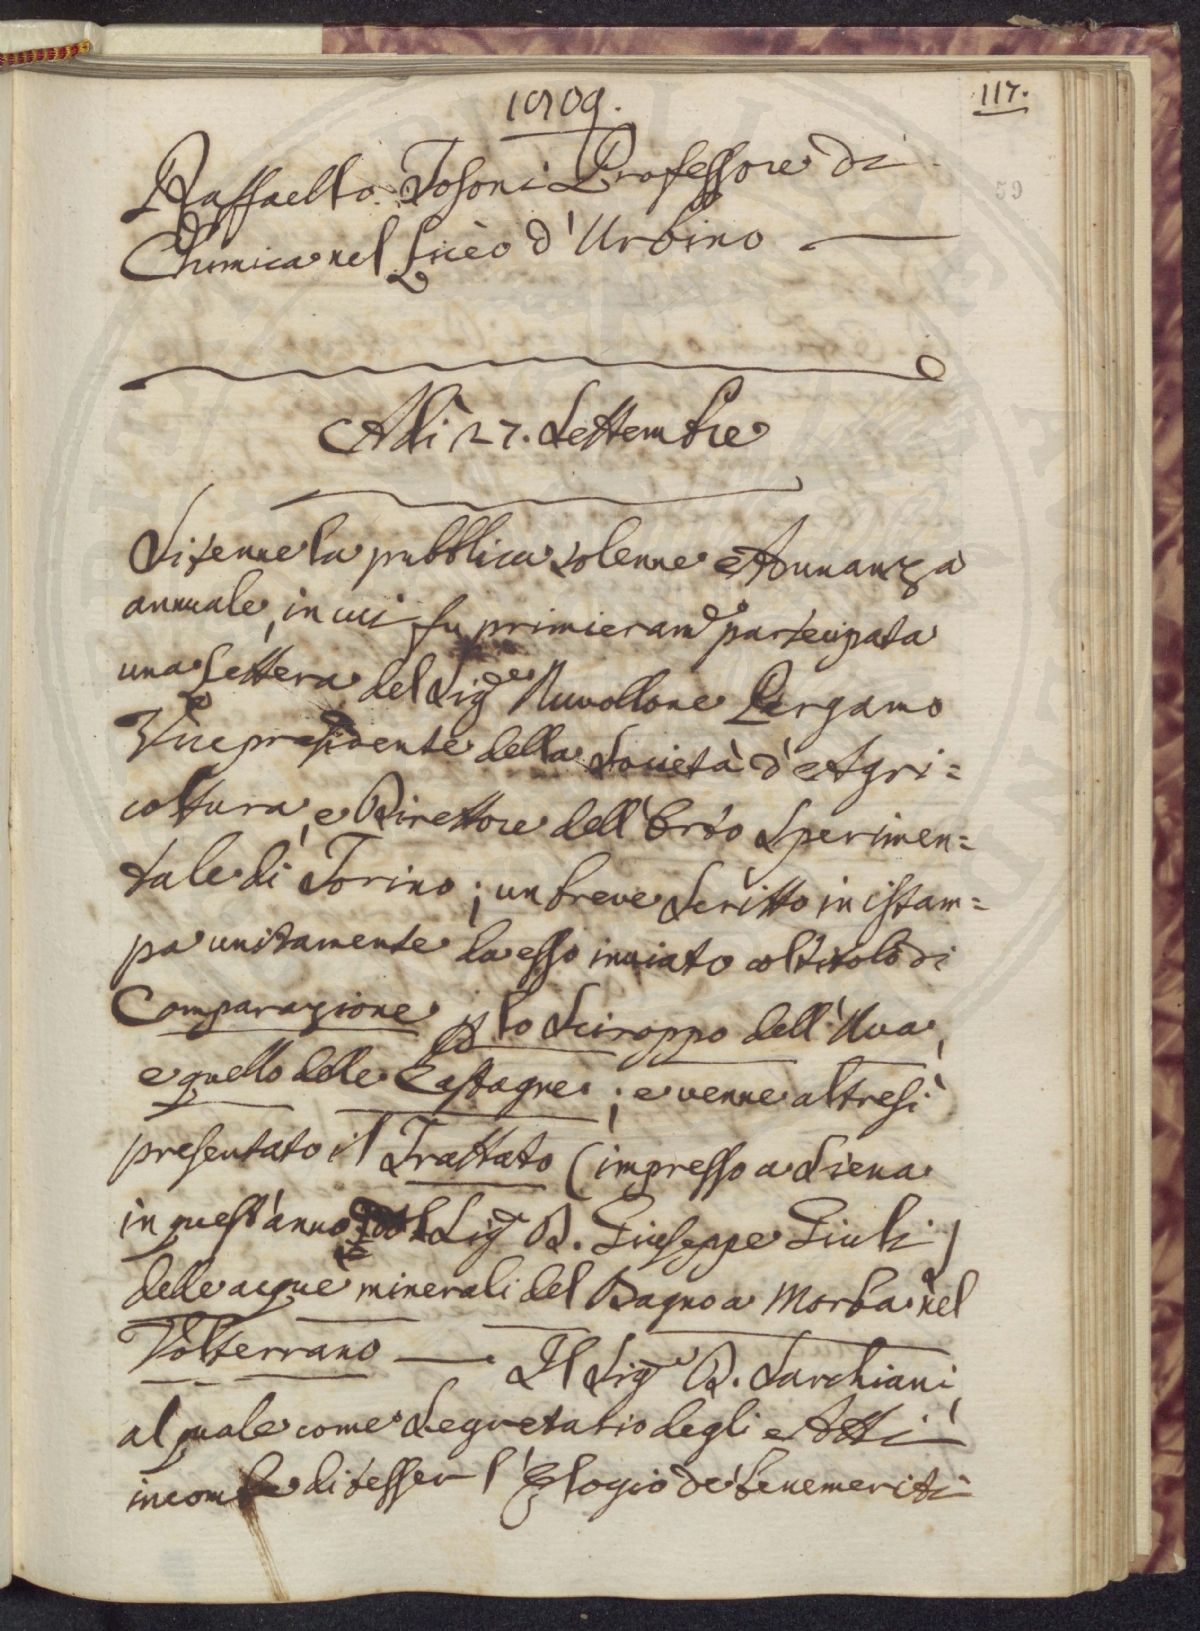 1809.
117.
59
Raffaello Tosoni Professore di
Chimica nel Liceo d'Urbino
Adì 27. Settembre
Si tenne la pubblica solenne Adunanza
annuale, in cui fu primieram.e partecipata
una Lettera del Sig.e Nuvollone Pergamo
Vicepresidente della Società d'Agri=
coltura, e Direttore dell'Orto Sperimen=
tale di Torino; un breve Scritto in istam=
pa unitamente da esso inviato col titolo di
Comparazione lo Sciroppo dell'Uva,
e quello delle Castagne; e venne altresì
presentato il Trattato (impresso a Siena
in quest'anno Sig.r D. Giuseppe Giuli)
delle acque minerali del Bagno a Morba nel
Volterrano — Il Sig.e D. Sarchiani,
al quale come Segretario degli Atti
incombe di tesser l'Elogio de' benemeriti